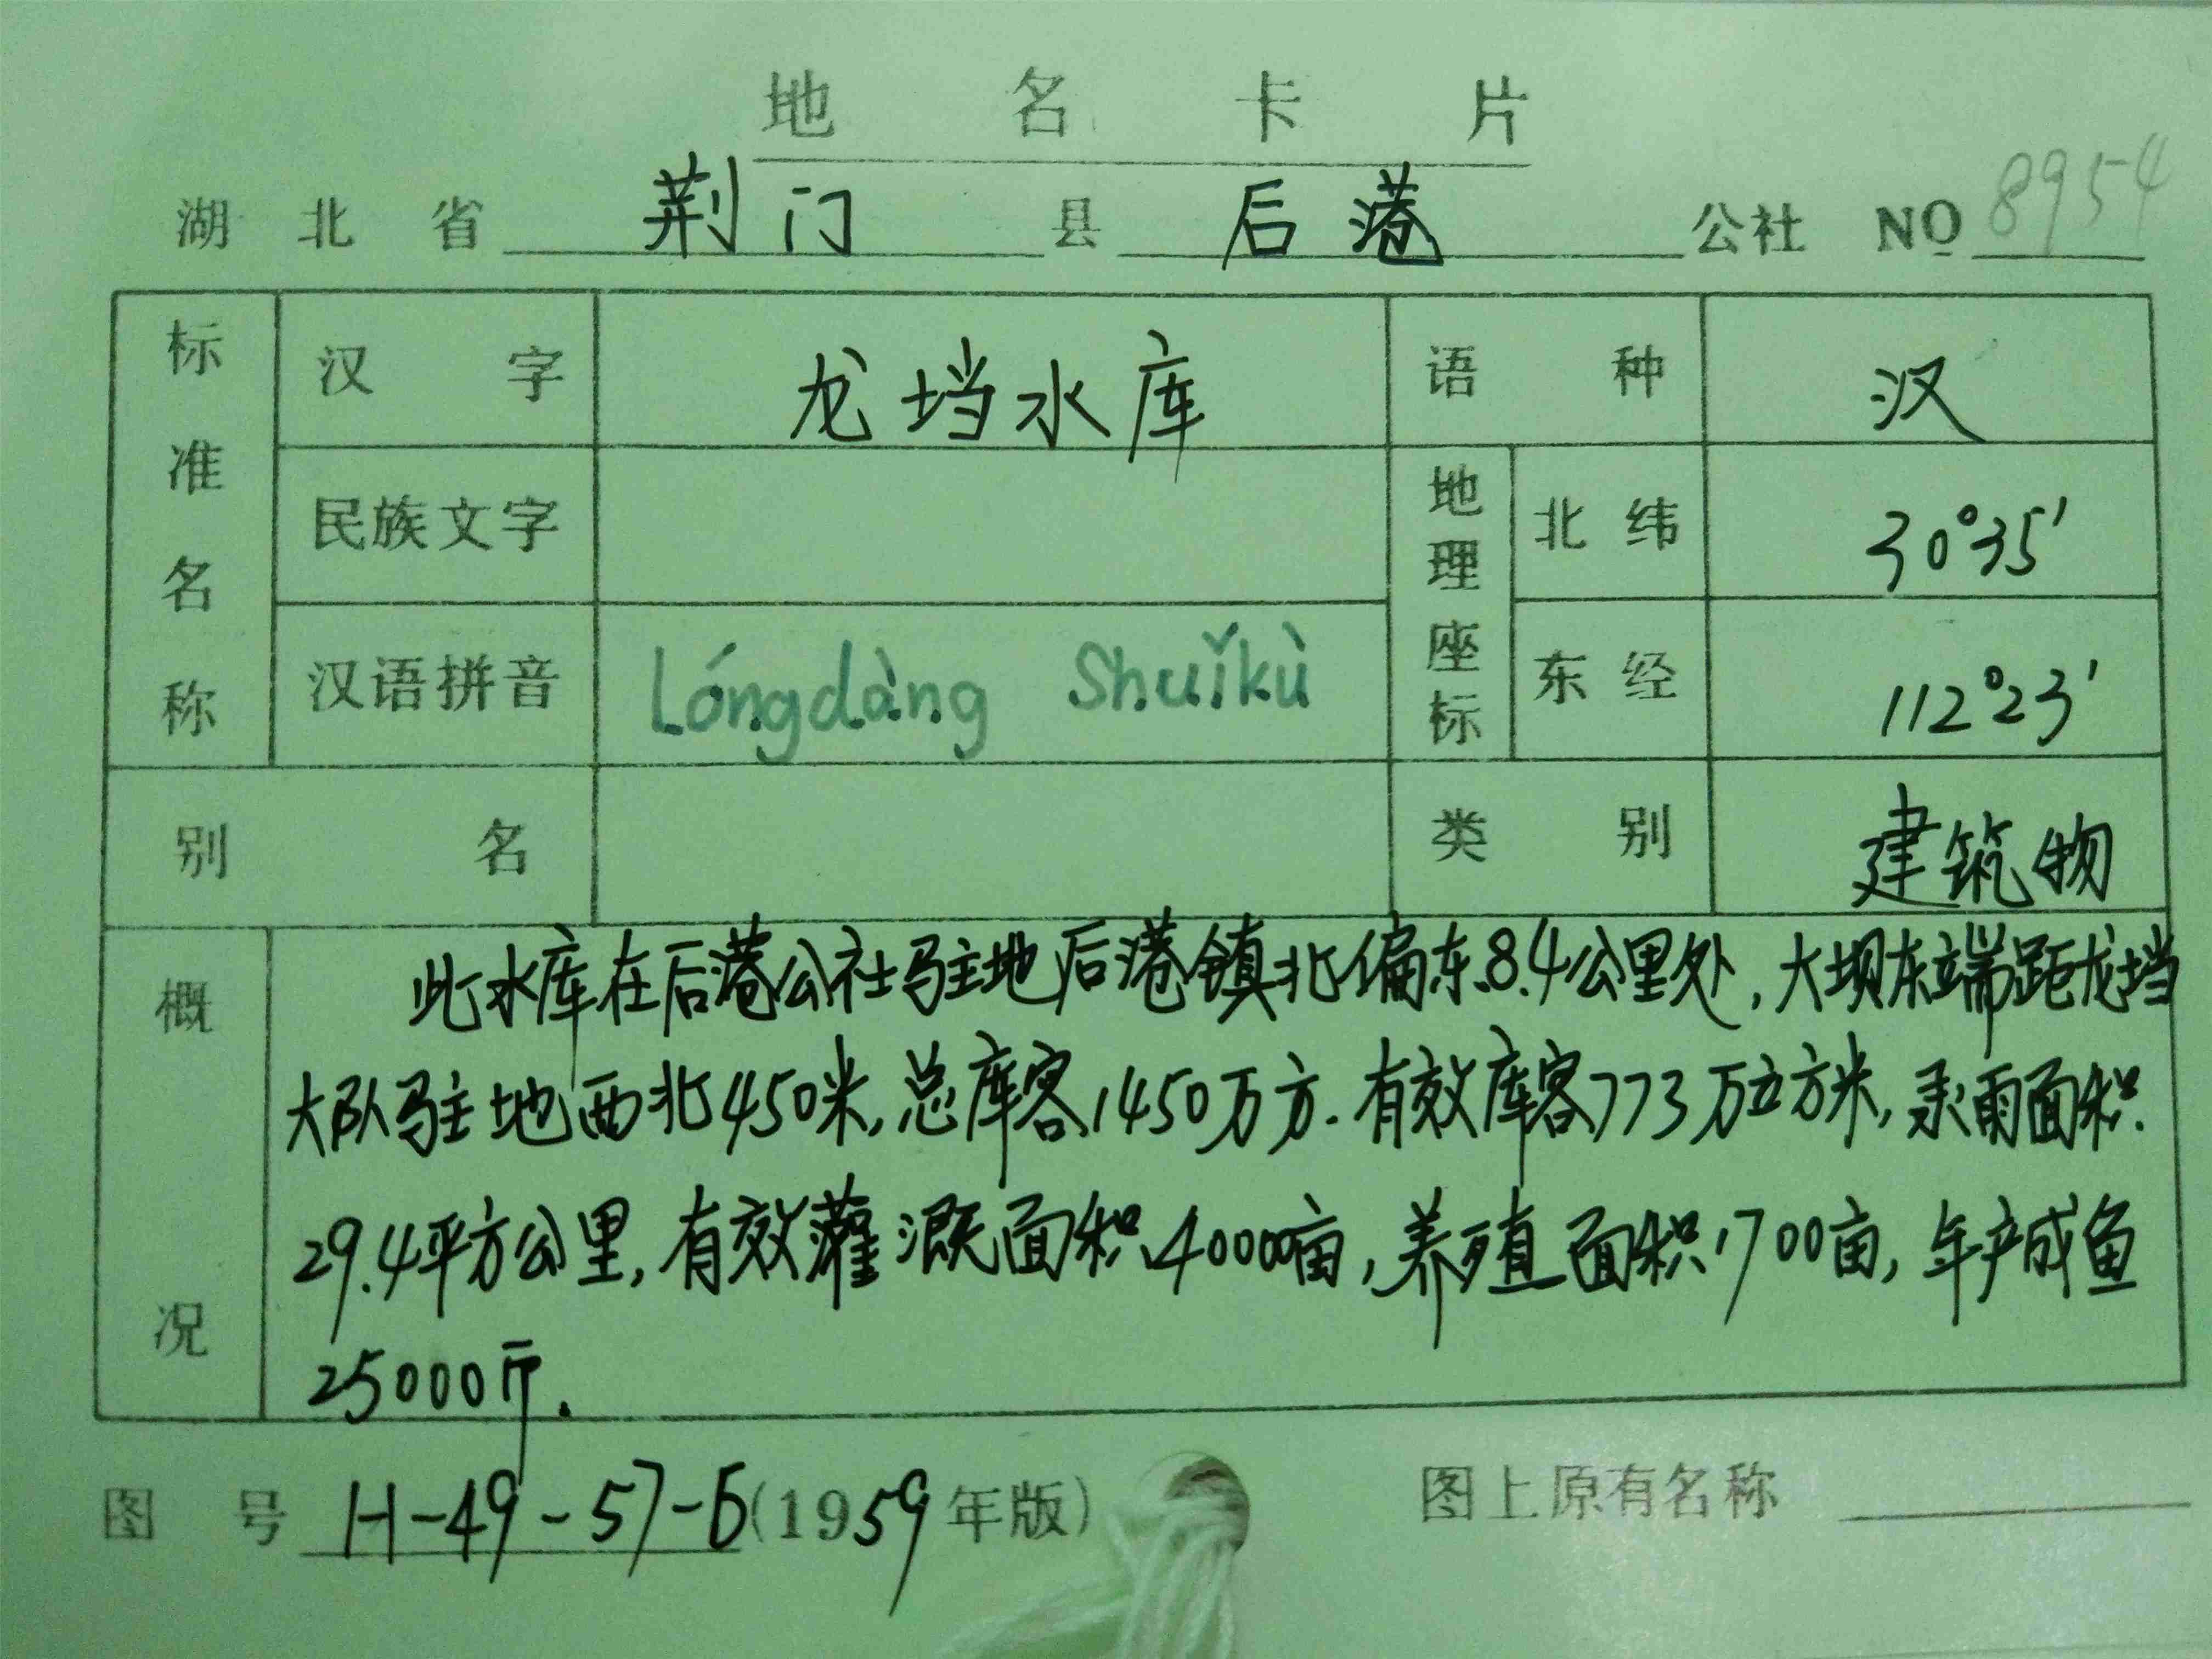 地名卡片
湖北省 荆门 县 后港 公社 NO 8954
标准名称 汉字 龙垱水库 语种 汉
民族文字 地理座标 北纬 30°35′
汉语拼音 Lóngdàng Shuǐkù 东经 112°23′
别名 类别 建筑物
概况 此水库在后港公社驻地后港镇北偏东8.4公里处,大坝东端距龙垱
大队驻地西北450米,总库容1450万方.有效库容773万立方米,承雨面积
29.4平方公里,有效灌溉面积40000亩,养殖面积1700亩,年产成鱼
25000斤.
图号 H-49-57-Б(1959年版) 图上原有名称